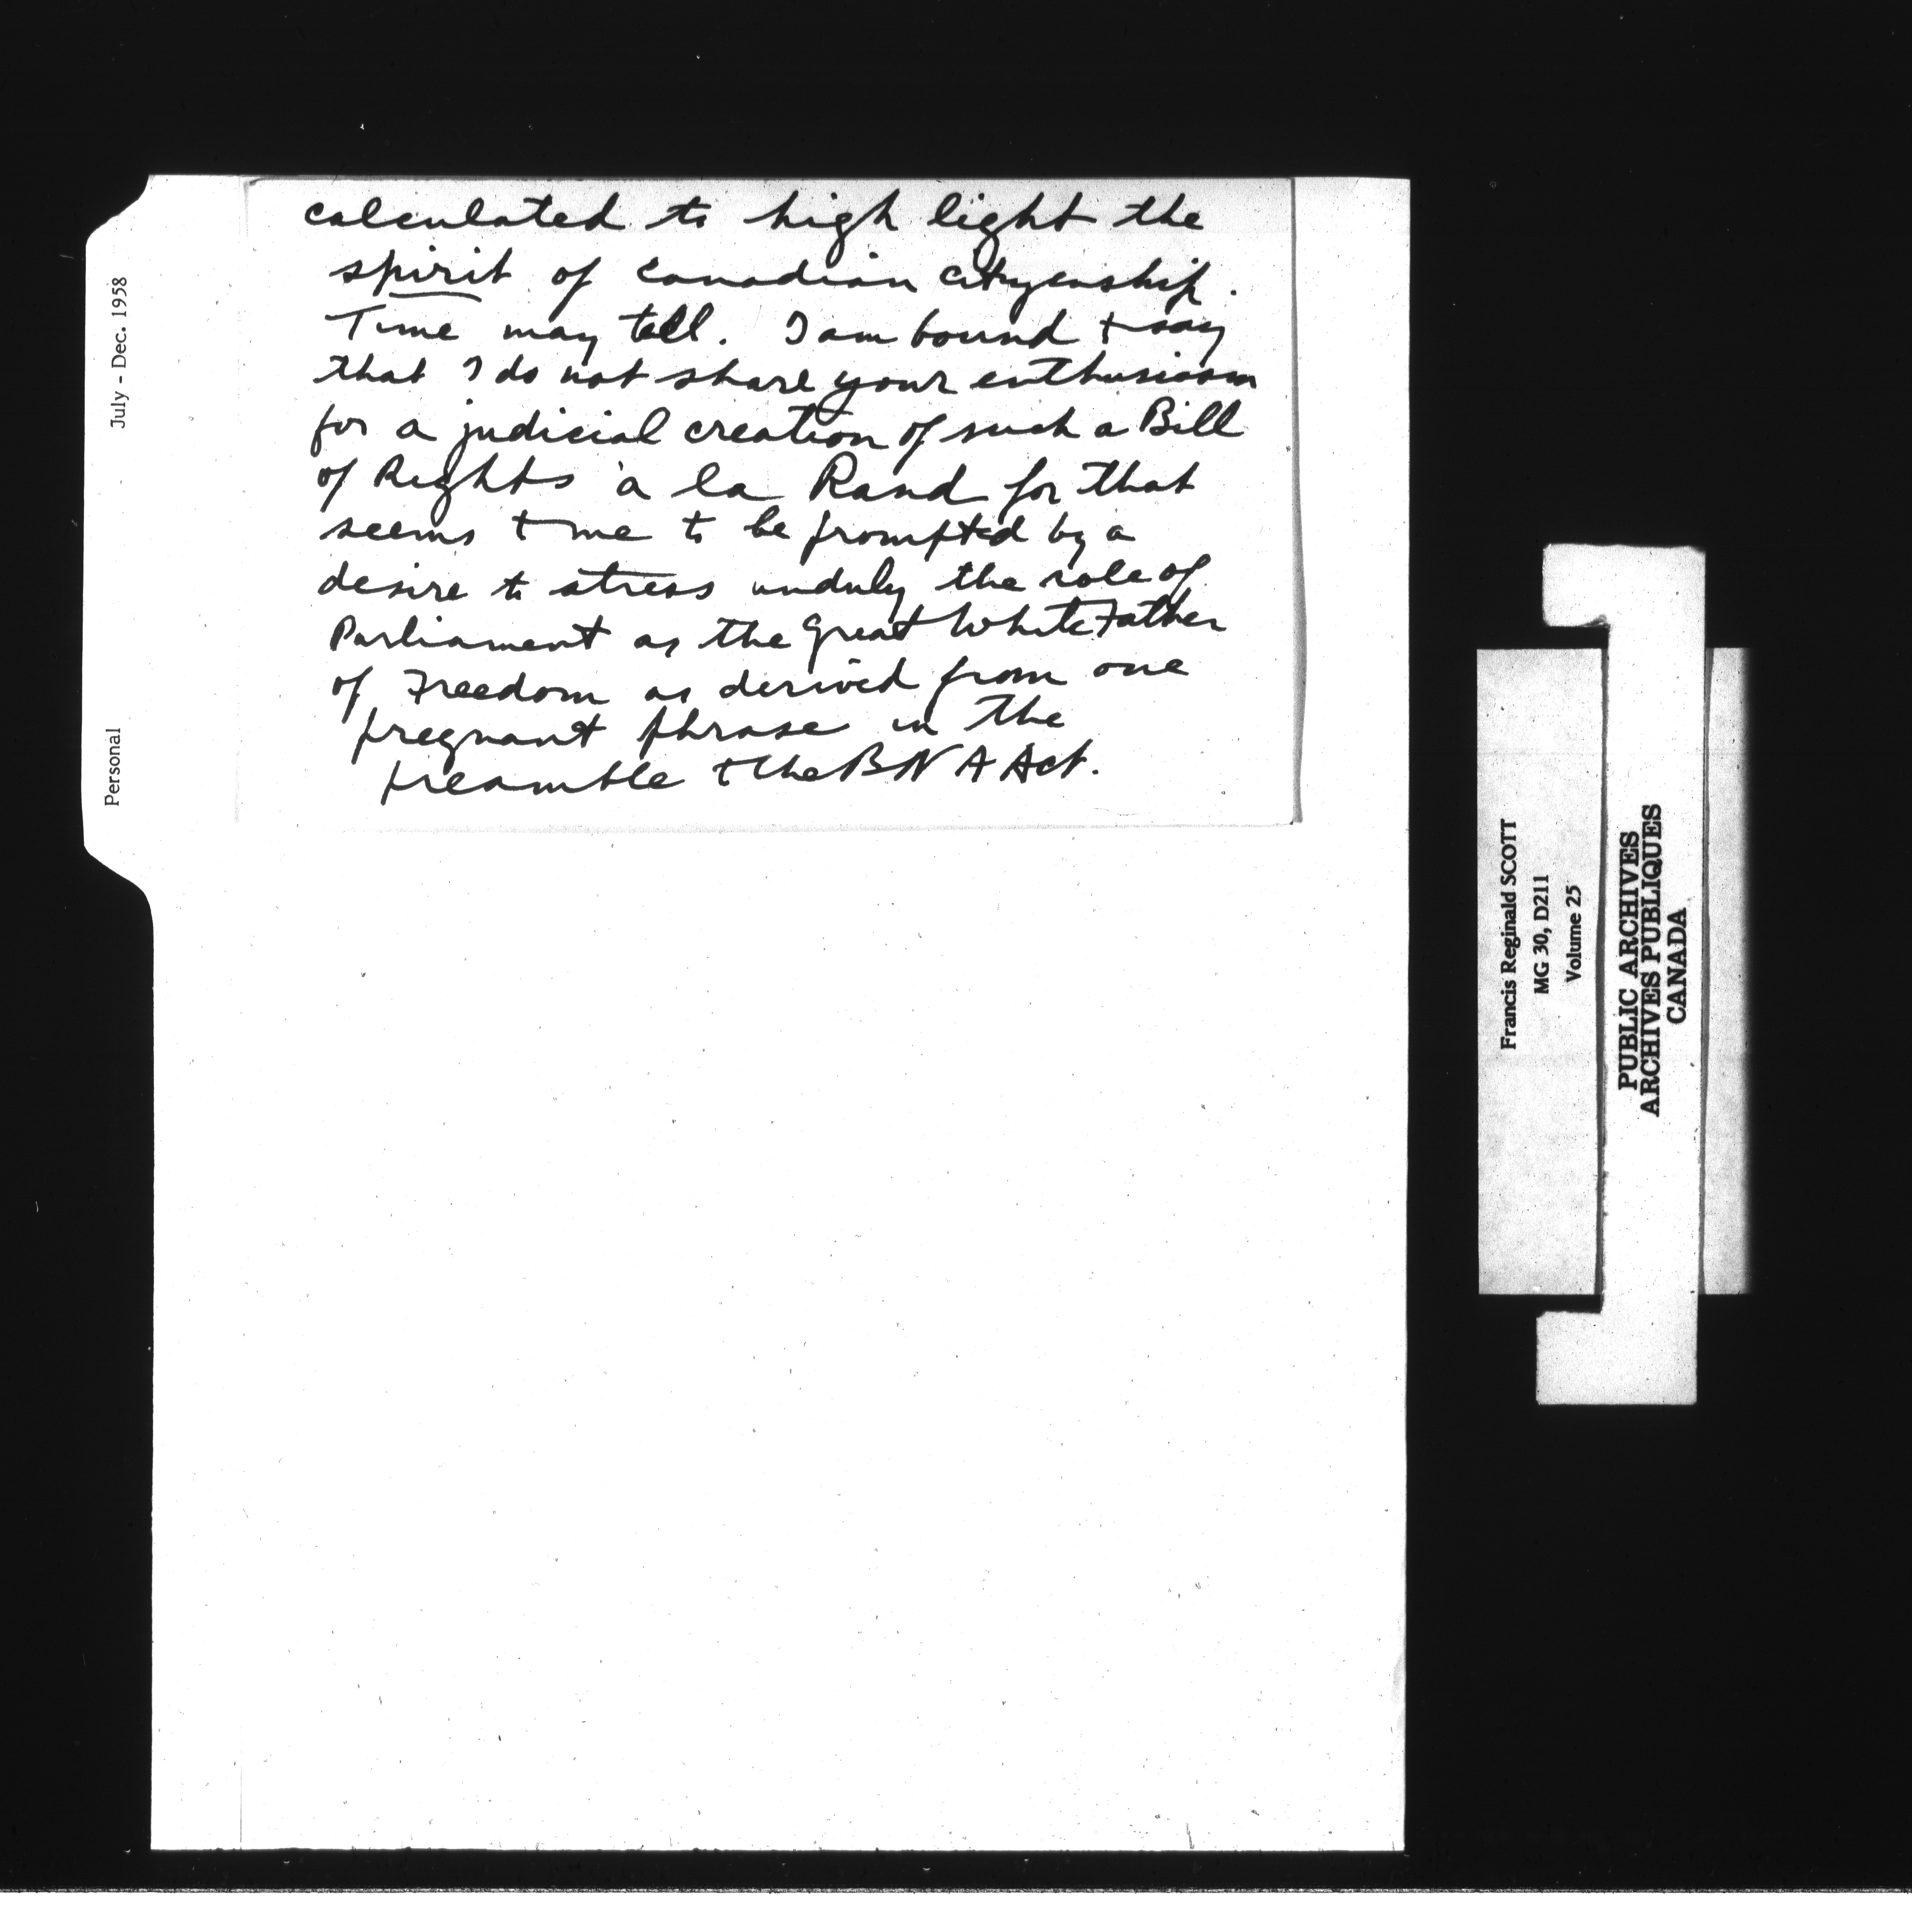 calculated to high light the
spirit of Canadian citizenship.
Time may tell. I am bound to say
that I do not share your enthusiasm
for a judicial creation of such a Bill
of Rights à la Rand for that
seems to me to be prompted by a
desire to stress unduly the role of
Parliament as the Great White Father
of Freedom as derived from one
pregnant phrase in the
preamble to the BNA Act.
Personal
July - Dec. 1958
Francis Reginald SCOTT
MG 30, D211
Volume 25
PUBLIC ARCHIVES
ARCHIVES PUBLIQUES
CANADA